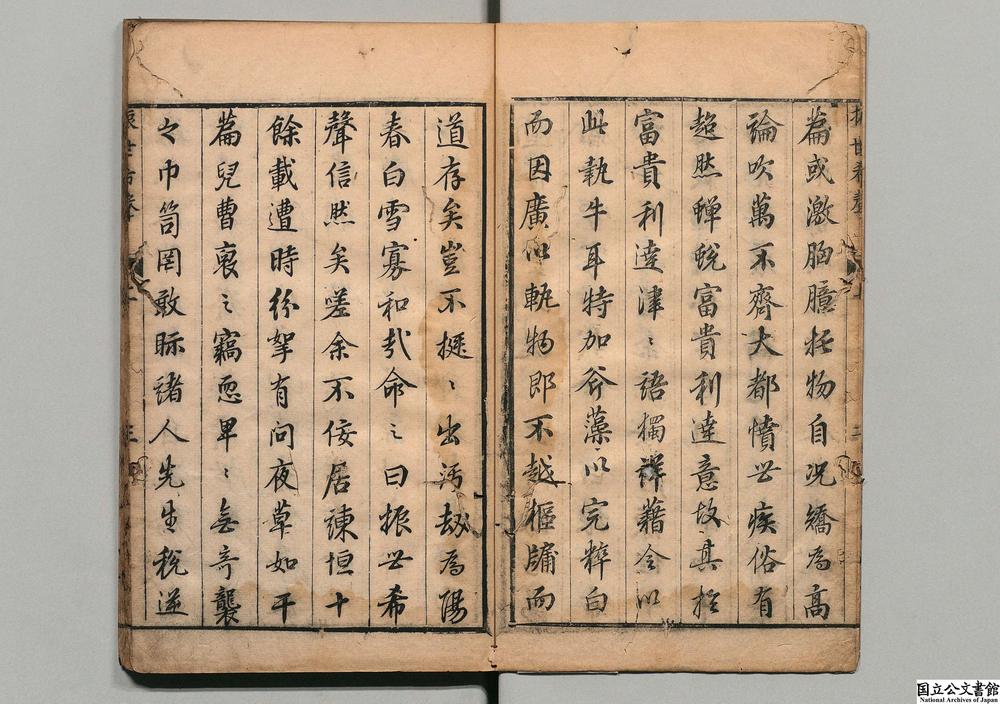 篇或激胸臆托物自况矯為高
論吹萬不齊大都憤世疾俗有
超然蟬蛻富貴利達意故其於
富貴利達津〻語獨詳藉令以
此執牛耳特加斧藻以完粹白
而因廣以軌物即不越樞牖而
道存矣豈不挺〻出汚劫為陽
春白雪寡和哉命之曰振世希
聲信然矣嗟余不佞居諫垣十
餘載遭時紛挐有問夜草如干
篇兒曹裒之竊恧卑〻無奇襲
之巾笥罔敢眎諸人先生稅逆
振世希聲
二
振世希聲
三
国立公文書館
National Archives of Japan